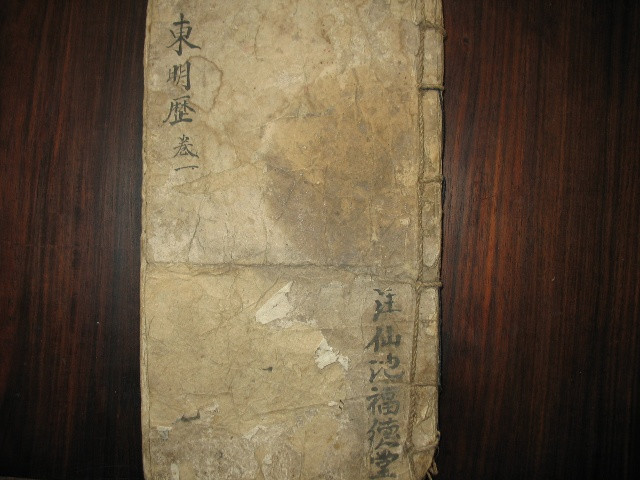 東明歷 卷一
注仙池福德堂